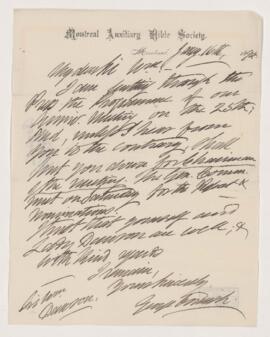 Montreal Auxiliary Bible Society.
Montreal, Jany 10th, 189
My dear Sir Wm.
I am putting through the
Press the Programme of our
Annl. Meeting on the 25th,
and, unless I hear from
you to the contrary, shall
put you down for Chairman
of the Meeting. The Gen. Comm.
meet on Saturday for the Report &
Nominations.
Trust that yourself and
Lady Dawson are well; &
with kind regards
I remain,
Yours sincerely
Sir Wm
Dawson.